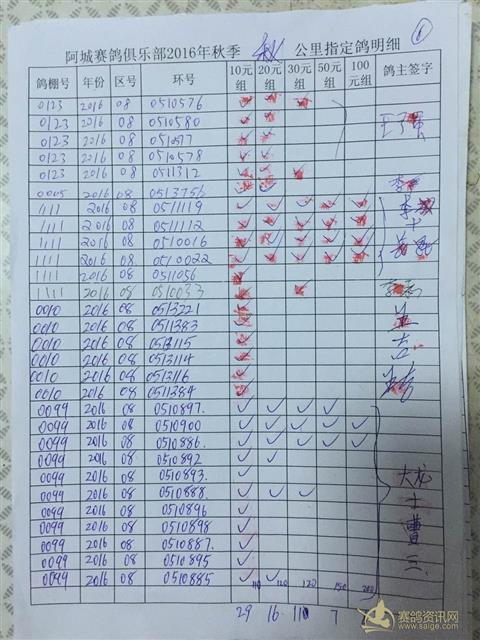 ①
阿城赛鸽俱乐部2016年秋季 秋 公里指定鸽明细
鸽棚号 年份 区号 环号 10元组 20元组 30元组 50元组 100元组 鸽主签字
0123 2016 08 0510576 ✓ ✓ ✓
0123 2016 08 0510580 ✓ ✓
0123 2016 08 0510577 ✓ ✓
0123 2016 08 0510578 ✓ ✓
0123 2016 08 0511312 ✓ ✓ ✓
0005 2016 08 0513756 ✓ ✓
1111 2016 08 0511119 ✓ ✓ ✓ ✓ ✓
1111 2016 08 0511112 ✓ ✓ ✓ ✓ ✓
1111 2016 08 0510016 ✓ ✓ ✓ ✓ ✓
1111 2016 08 0510022 ✓ ✓ ✓ ✓ ✓
1111 2016 08 0511056 ✓
1111 2016 08 0510033 ✓ ✓
0010 2016 08 0513221 ✓
0010 2016 08 0511383 ✓
0010 2016 08 0513115 ✓
0010 2016 08 0513114 ✓
0010 2016 08 0513116 ✓
0010 2016 08 0511384 ✓
0099 2016 08 0510897. ✓ ✓ ✓ ✓ ✓
0099 2016 08 0510900 ✓ ✓ ✓ ✓ ✓
0099 2016 08 0510886. ✓ ✓ ✓ ✓ ✓
0099 2016 08 0510892 ✓ ✓
0099 2016 08 0510893. ✓
0099 2016 08 0510888 ✓ ✓ ✓
0099 2016 08 0510896 ✓
0099 2016 08 0510898 ✓
0099 2016 08 0510887. ✓
0099 2016 08 0510895 ✓
0099 2016 08 0510885 ✓ ✓
大龙
十
曹
三
29 16 7
赛鸽资讯网
www.saige.com